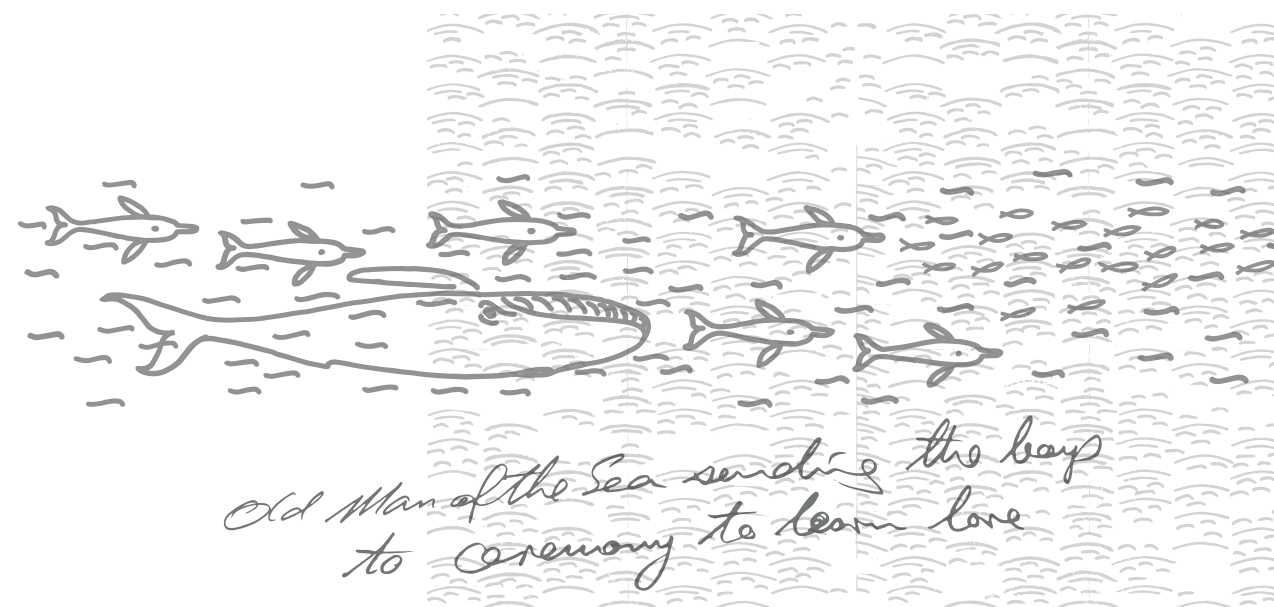 Old Man of the Sea sending the boys
to Ceremony to learn lore